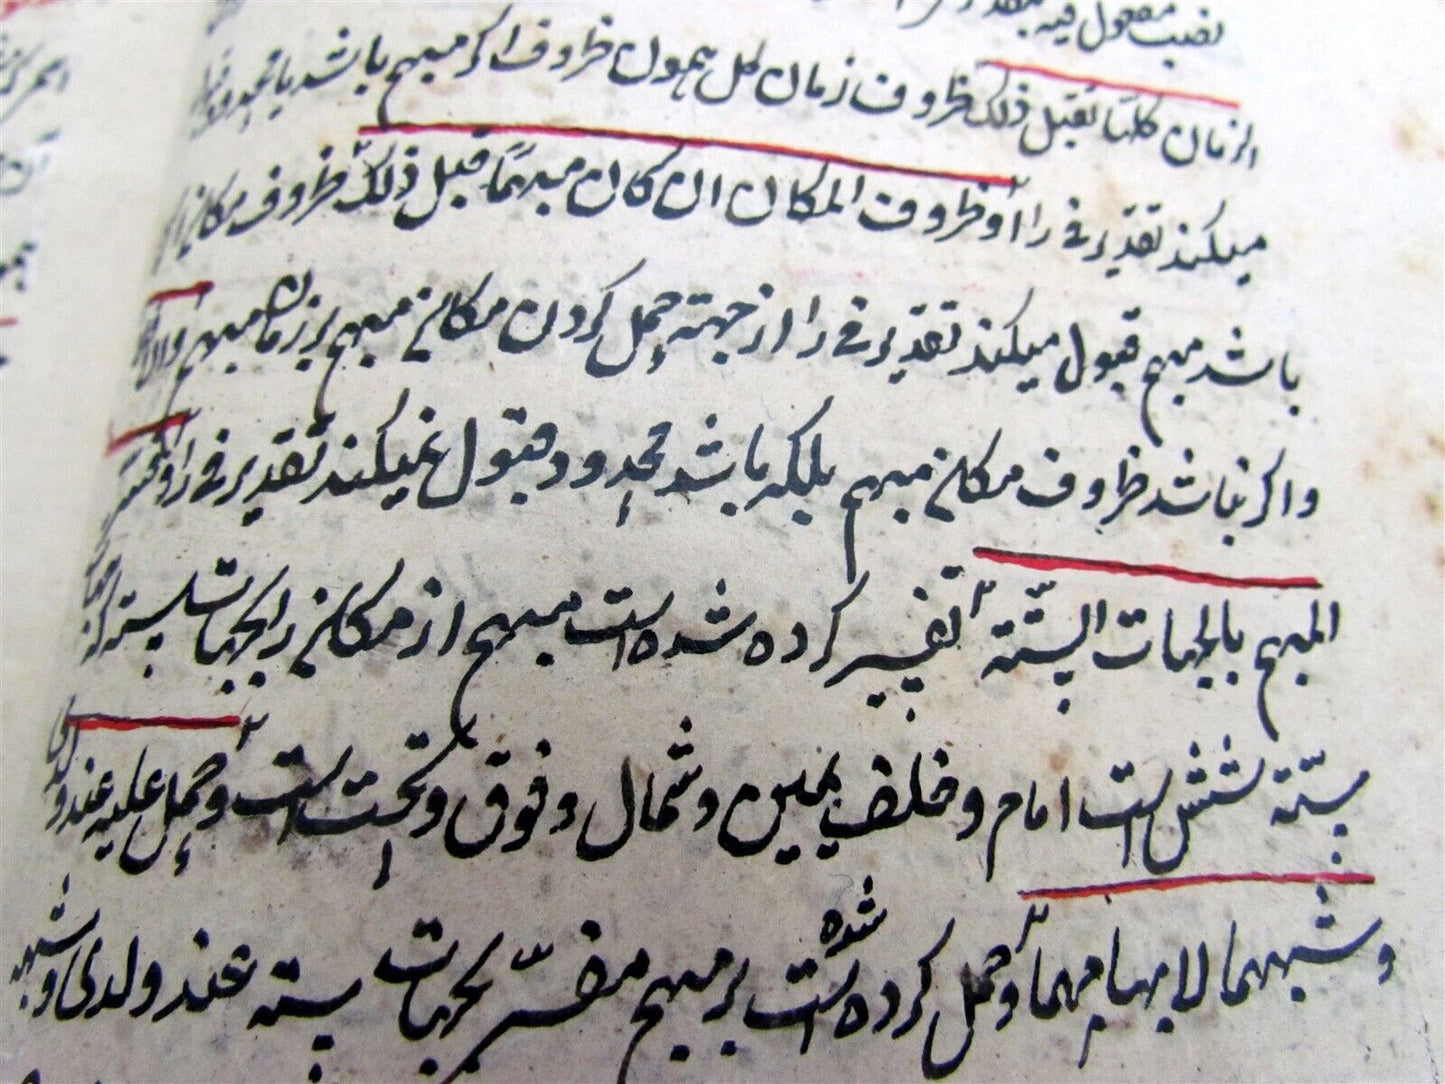 نصب مفعول فیه
الزمان کلها تقبل ذلک ظروف زمان کل همون ظروف اکر مبهم باشد یا محدود
میکند تقدیر فی را وظروف المکان ان کان مبهمًا قبل ذلک ظروف مکانی
باشد مبهم قبول میکند تقدیر فی را از جهته حمل کردن مکانی مبهم بر زمان مبهم والا
واکر نباشد ظروف مکانی مبهم بلکه باشد محدود قبول نمیکند تقدیر فی را وفسّر
المبهم بالجهات الستّة تفسیر کرده شده است مبهم از مکانی را بجهات سته که
ستّة شش است امام و خلف یمین و شمال و فوق و تحت است وحمل علیه عند ولدی
وشبههما لابهامهما وحمل کرده شده است بر مبهم مفسّر بجهات سته عند ولدی وشبه